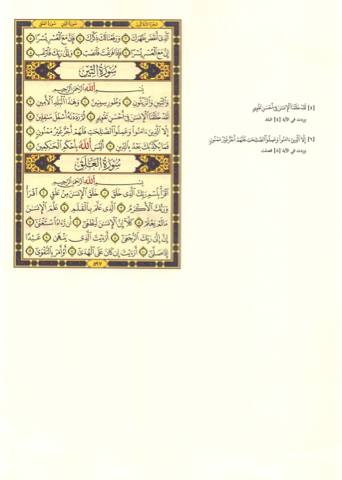 الجزء الثلاثون سورة التين سورة العلق
ٱلَّذِىٓ أَنقَضَ ظَهْرَكَ ٣ وَرَفَعْنَا لَكَ ذِكْرَكَ ٤ فَإِنَّ مَعَ ٱلْعُسْرِ يُسْرًا ٥
إِنَّ مَعَ ٱلْعُسْرِ يُسْرًا ٦ فَإِذَا فَرَغْتَ فَٱنصَبْ ٧ وَإِلَىٰ رَبِّكَ فَٱرْغَب ٨
سُورَةُ التِّينِ
بِسْمِ ٱللَّهِ ٱلرَّحْمَٰنِ ٱلرَّحِيمِ
وَٱلتِّينِ وَٱلزَّيْتُونِ ١ وَطُورِ سِينِينَ ٢ وَهَٰذَا ٱلْبَلَدِ ٱلْأَمِينِ
٣ لَقَدْ خَلَقْنَا ٱلْإِنسَٰنَ فِىٓ أَحْسَنِ تَقْوِيمٍ ٤ ثُمَّ رَدَدْنَٰهُ أَسْفَلَ سَٰفِلِينَ
٥ إِلَّا ٱلَّذِينَ ءَامَنُوا۟ وَعَمِلُوا۟ ٱلصَّٰلِحَٰتِ فَلَهُمْ أَجْرٌ غَيْرُ مَمْنُونٍ
٦ فَمَا يُكَذِّبُكَ بَعْدُ بِٱلدِّينِ ٧ أَلَيْسَ ٱللَّهُ بِأَحْكَمِ ٱلْحَٰكِمِينَ ٨
سُورَةُ العَلَقِ
بِسْمِ ٱللَّهِ ٱلرَّحْمَٰنِ ٱلرَّحِيمِ
ٱقْرَأْ بِٱسْمِ رَبِّكَ ٱلَّذِى خَلَقَ ١ خَلَقَ ٱلْإِنسَٰنَ مِنْ عَلَقٍ ٢ ٱقْرَأْ
وَرَبُّكَ ٱلْأَكْرَمُ ٣ ٱلَّذِى عَلَّمَ بِٱلْقَلَمِ ٤ عَلَّمَ ٱلْإِنسَٰنَ
مَا لَمْ يَعْلَمْ ٥ كَلَّآ إِنَّ ٱلْإِنسَٰنَ لَيَطْغَىٰٓ ٦ أَن رَّءَاهُ ٱسْتَغْنَىٰٓ ٧
إِنَّ إِلَىٰ رَبِّكَ ٱلرُّجْعَىٰٓ ٨ أَرَءَيْتَ ٱلَّذِى يَنْهَىٰ ٩ عَبْدًا
إِذَا صَلَّىٰٓ ١٠ أَرَءَيْتَ إِن كَانَ عَلَى ٱلْهُدَىٰٓ ١١ أَوْ أَمَرَ بِٱلتَّقْوَىٰٓ ١٢
٥٩٧
[٤] لَقَدْ خَلَقْنَا ٱلْإِنسَٰنَ فِىٓ أَحْسَنِ تَقْوِيمٍ
وردت في الآية [٤] البلد
[٦] إِلَّا ٱلَّذِينَ ءَامَنُوا۟ وَعَمِلُوا۟ ٱلصَّٰلِحَٰتِ فَلَهُمْ أَجْرٌ غَيْرُ مَمْنُونٍ
وردت في الآية [٨] فصلت